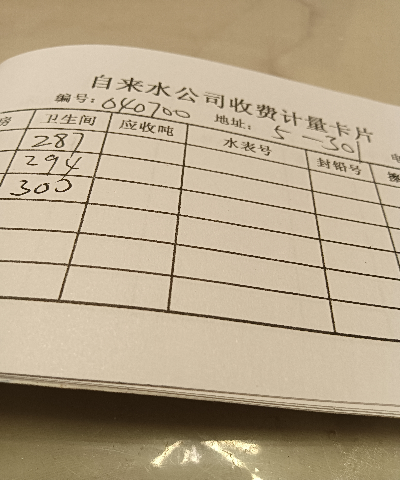 自来水公司收费计量卡片
编号: 040700 地址: 5-301
卫生间 应收吨 水表号 封铅号
287
294
300